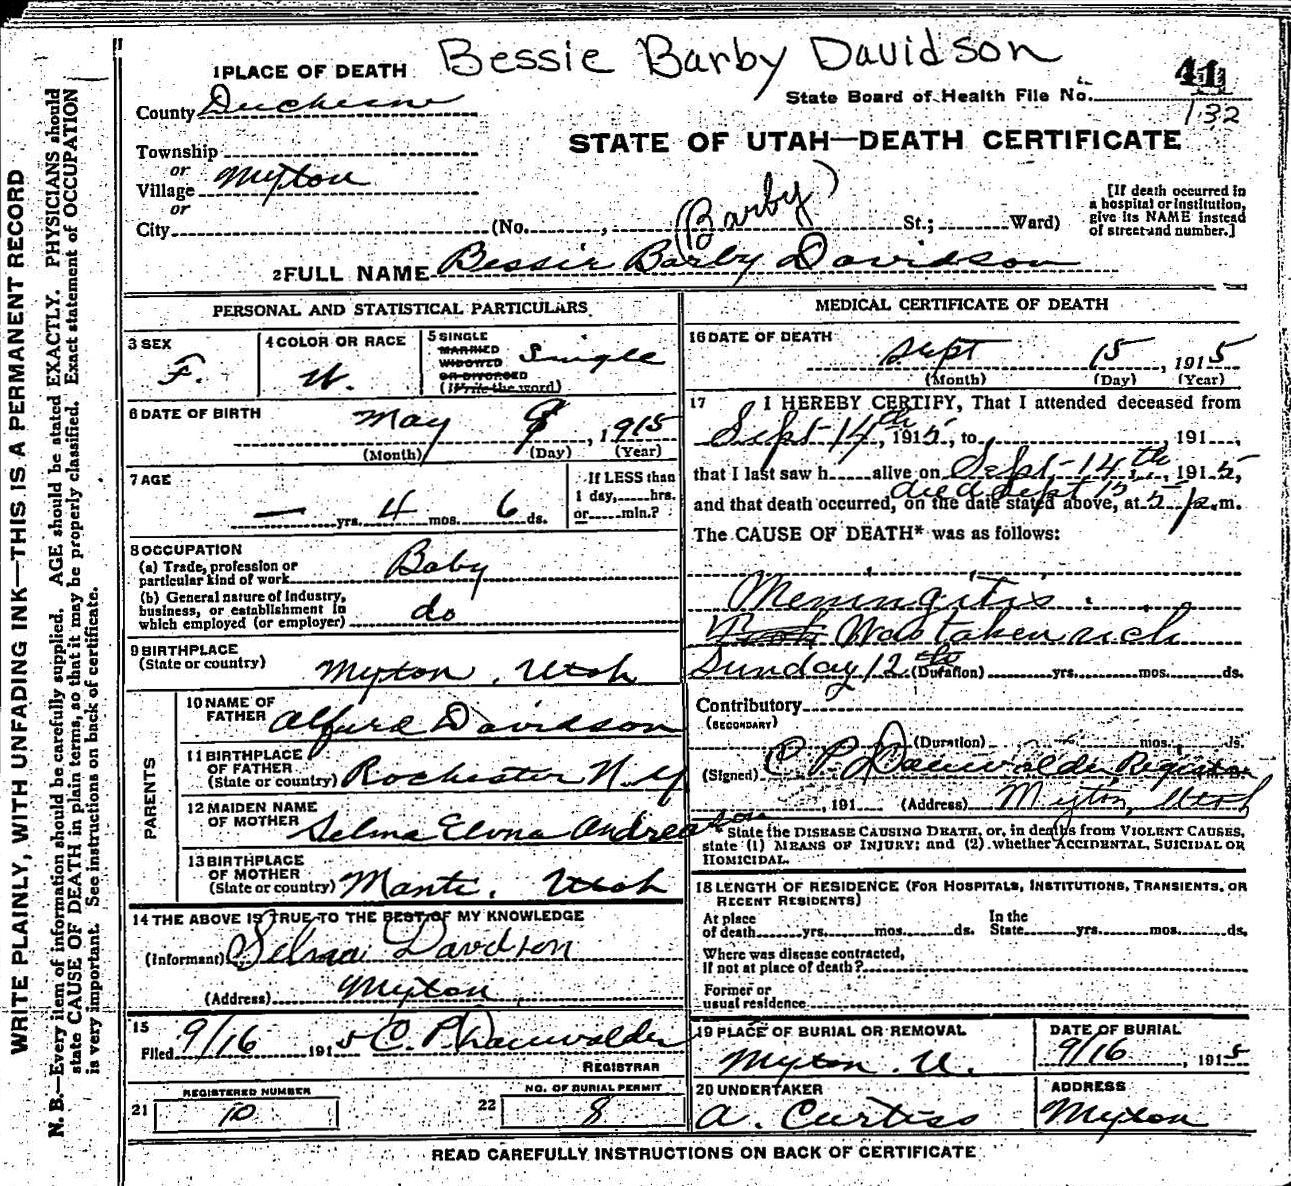 Bessie Barby Davidson
1 PLACE OF DEATH
41
State Board of Health File No.
132
County Duchesne
STATE OF UTAH—DEATH CERTIFICATE
Township
or
Village Myton
or
City (No. , St.; Ward)
(Barby)
[If death occurred in
a hospital or institution,
give its NAME instead
of street and number.]
2 FULL NAME Bessie Barby Davidson
PERSONAL AND STATISTICAL PARTICULARS
3 SEX F.
4 COLOR OR RACE W.
5 SINGLE
MARRIED
WIDOWED
OR DIVORCED
(Write the word)
Single
6 DATE OF BIRTH
May 9, 1915
(Month) (Day) (Year)
7 AGE
— yrs. 4 mos. 6 ds.
If LESS than
1 day, hrs.
or min.?
8 OCCUPATION
(a) Trade, profession or
particular kind of work Baby
(b) General nature of industry,
business, or establishment in
which employed (or employer) do
9 BIRTHPLACE
(State or country) Myton, Utah
PARENTS
10 NAME OF
FATHER Alfred Davidson
11 BIRTHPLACE
OF FATHER
(State or country) Rochester N.Y
12 MAIDEN NAME
OF MOTHER Selma Elvna Andreason
13 BIRTHPLACE
OF MOTHER
(State or country) Manti, Utah
14 THE ABOVE IS TRUE TO THE BEST OF MY KNOWLEDGE
(Informant) Selma Davidson
(Address) Myton
15
Filed 9/16 1915 C. P. Dauwalder
REGISTRAR
REGISTERED NUMBER
21 10
NO. OF BURIAL PERMIT
22 8
MEDICAL CERTIFICATE OF DEATH
16 DATE OF DEATH
Sept 15, 1915
(Month) (Day) (Year)
17 I HEREBY CERTIFY, That I attended deceased from
Sept 14th, 1915, to , 191 ,
that I last saw h alive on Sept-14th, 1915,
died Sept 15
and that death occurred, on the date stated above, at 5 p.m.
The CAUSE OF DEATH* was as follows:
Meningitis.
Was taken sick
Sunday 12th (Duration) yrs. mos. ds.
Contributory
(SECONDARY)
(Duration) mos. ds.
(Signed) C. P. Dauwalder Registrar
, 191 (Address) Myton, Utah
*State the DISEASE CAUSING DEATH, or, in deaths from VIOLENT CAUSES,
state (1) MEANS OF INJURY; and (2) whether ACCIDENTAL, SUICIDAL OR
HOMICIDAL.
18 LENGTH OF RESIDENCE (FOR HOSPITALS, INSTITUTIONS, TRANSIENTS, OR
RECENT RESIDENTS)
At place
of death yrs. mos. ds.
In the
State yrs. mos. ds.
Where was disease contracted,
if not at place of death?
Former or
usual residence
19 PLACE OF BURIAL OR REMOVAL
Myton. U.
DATE OF BURIAL
9/16, 1915
20 UNDERTAKER
A. Curtiss
ADDRESS
Myton
READ CAREFULLY INSTRUCTIONS ON BACK OF CERTIFICATE
WRITE PLAINLY, WITH UNFADING INK—THIS IS A PERMANENT RECORD
N. B.—Every item of information should be carefully supplied. AGE should be stated EXACTLY. PHYSICIANS should
state CAUSE OF DEATH in plain terms, so that it may be properly classified. Exact statement of OCCUPATION
is very important. See instructions on back of certificate.